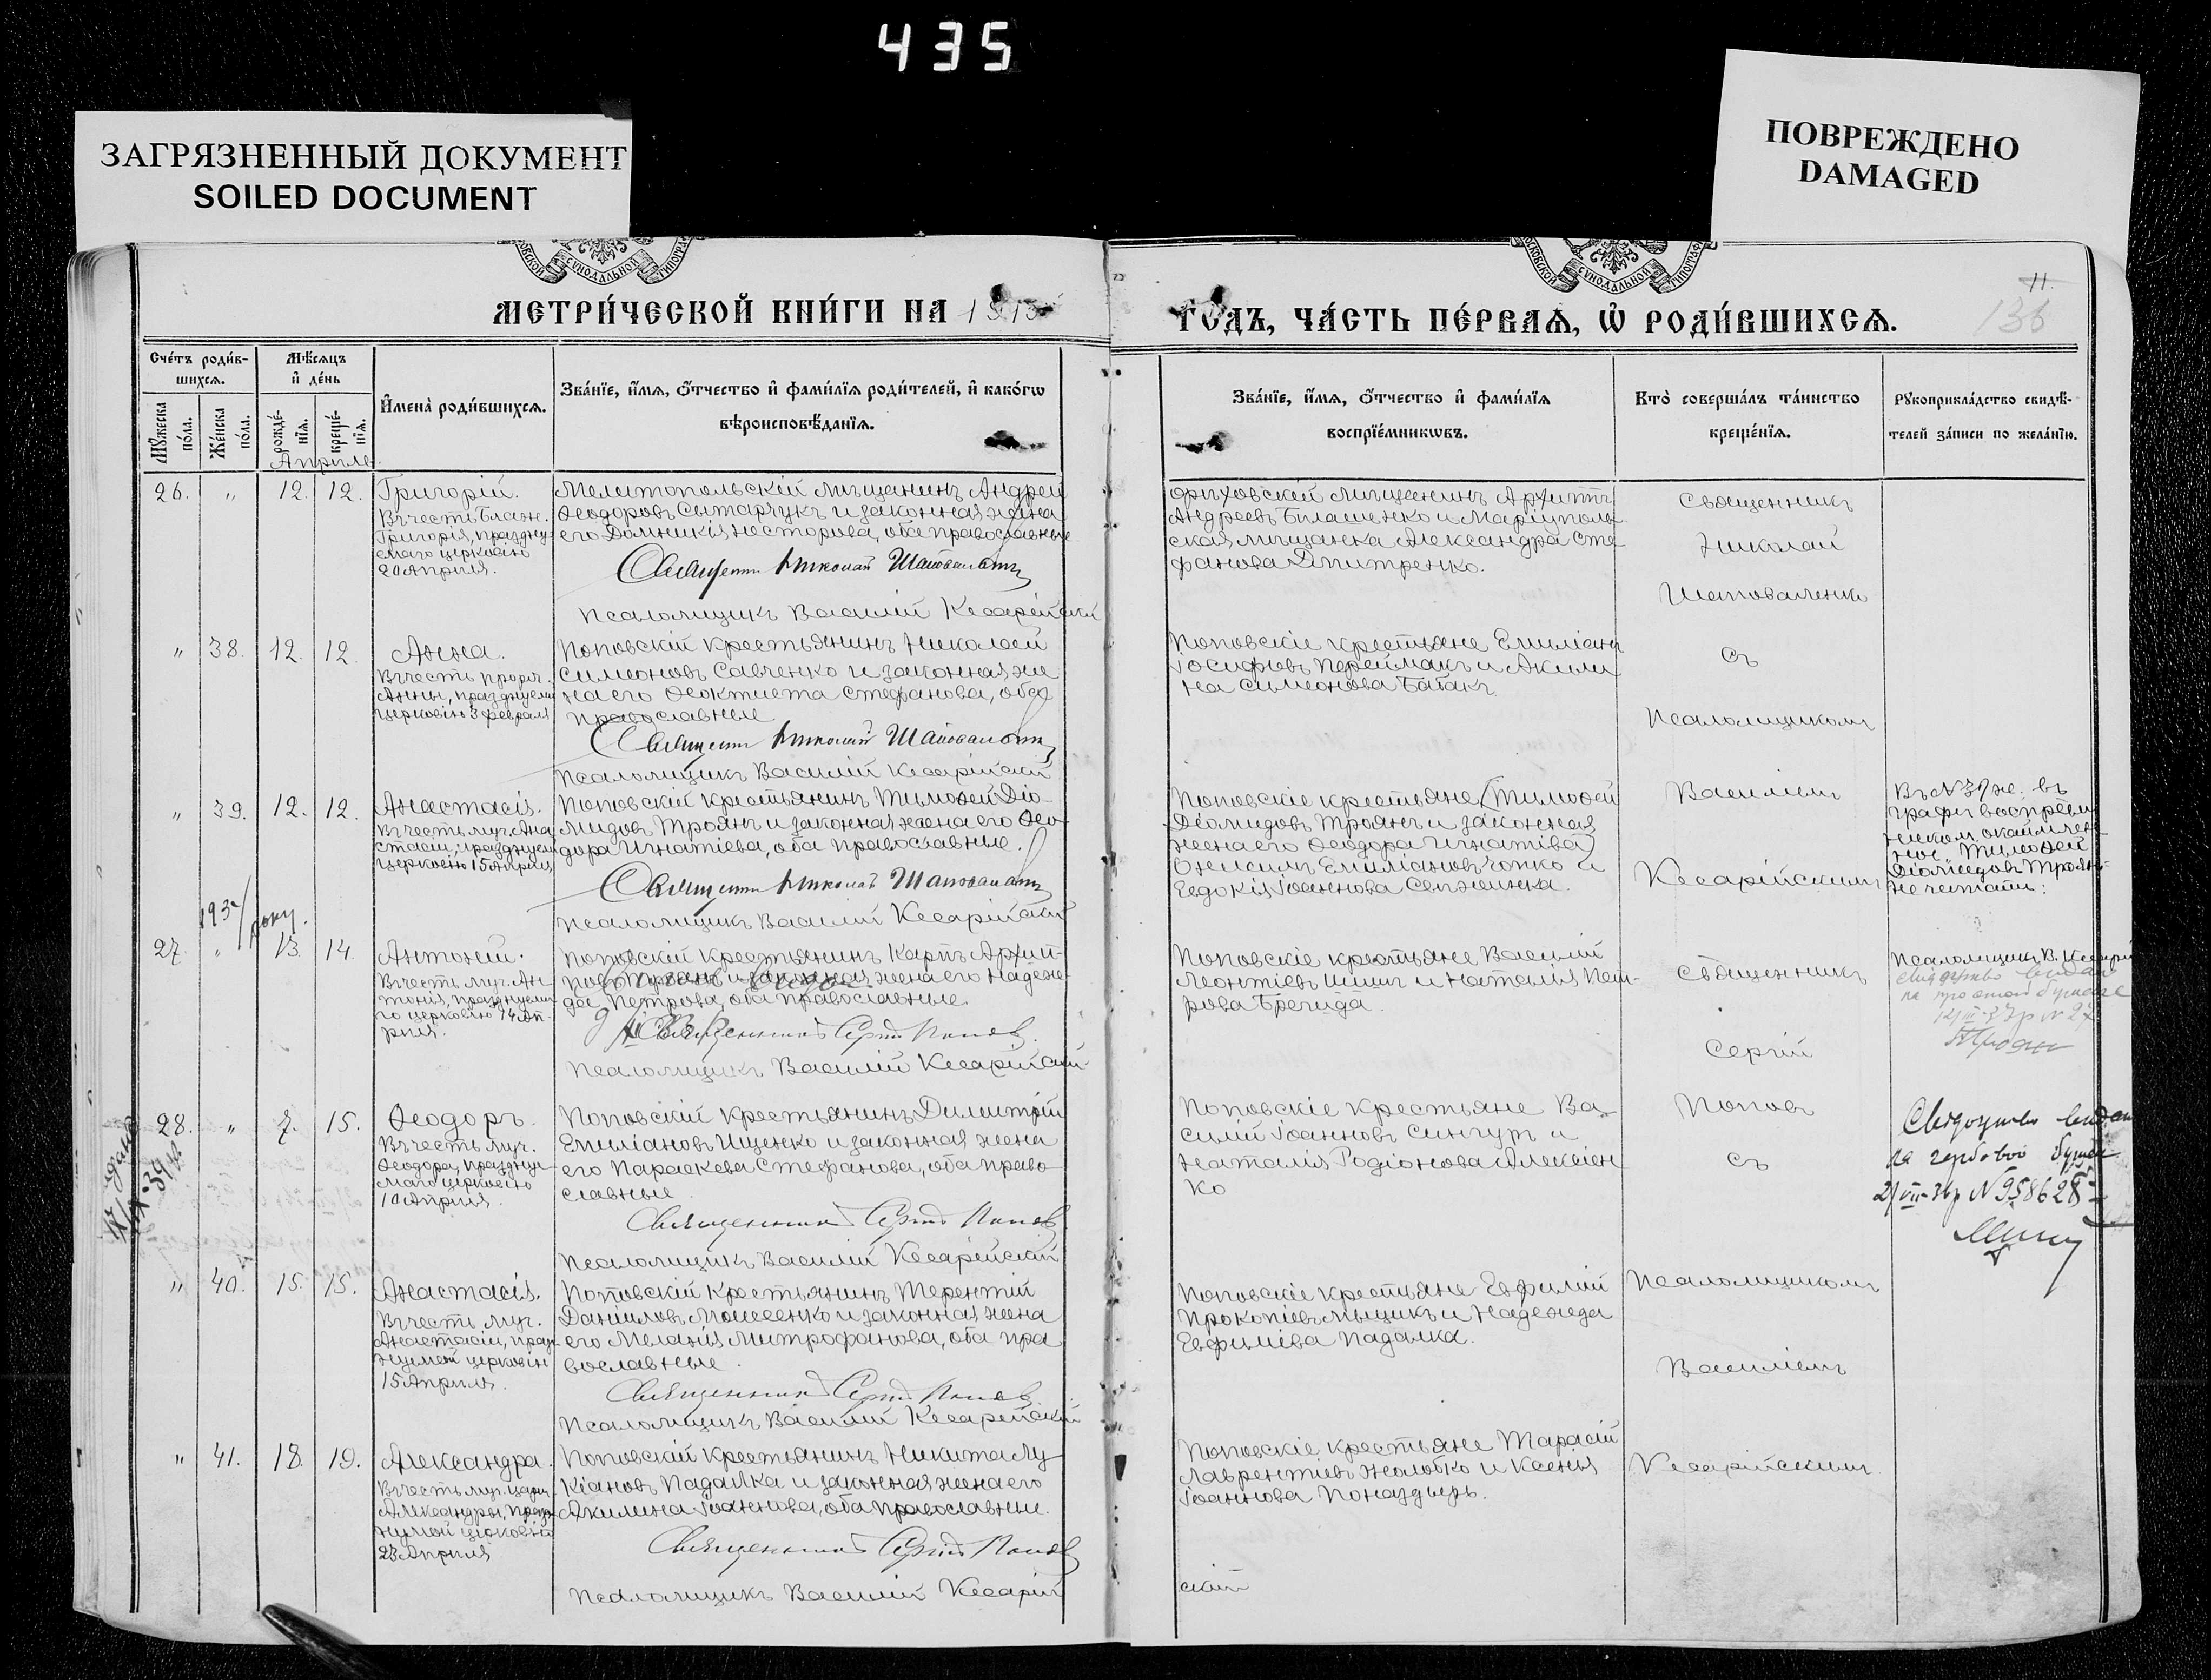 435
ЗАГРЯЗНЕННЫЙ ДОКУМЕНТ
SOILED DOCUMENT
ПОВРЕЖДЕНО
DAMAGED
МЕТРИ́ЧЕСКОЙ КНИ́ГИ НА 1915
ГОДЪ, ЧА́СТЬ ПЕ́РВАѦ, Ѡ҆ РОДИ́ВШИХСѦ.
11.
136
Сче́тъ роди́в-
шихсѧ.
Мѣ́сѧцъ
и҆ де́нь
Мꙋ́жеска
по́ла.
Же́нска
по́ла.
рожде́-
нїѧ.
креще́-
нїѧ.
И҆мена̀ роди́вшихсѧ.
Зва́нїе, и҆́мѧ, ѻ҆́тчество и҆ фами́лїѧ роди́телей, и҆ како́гѡ
вѣроисповѣ́данїѧ.
Зва́нїе, и҆́мѧ, ѻ҆́тчество и҆ фами́лїѧ
воспрїе́мникѡвъ.
Кто̀ соверша́лъ та́инство
креще́нїѧ.
Рꙋкоприкла́дство свидѣ́-
телей за́писи по жела́нїю.
Апрѣль
26. " 12. 12.
Григорій.
Въ честь Блаж.
Григорія, праздну-
емаго церковію
20 Апрѣля.
Мелитопольскій мѣщанинъ Андрей
Ѳеодоровъ Сытарчукъ и законная жена
его Домникія Несторова, оба православные
Священник Николай Шаповаленко
Псаломщикъ Василій Кесарійскій
Орѣховскій мѣщанинъ Архиппъ
Андреевъ Билашенко и Маріуполь
ская мѣщанка Александра Сте
фанова Дмитренко.
Священникъ
Николай
Шаповаленко
" 38. 12. 12.
Анна.
Въ честь прор.
Анны, празднуем.
церковію 3 февраля
Поповскій крестьянинъ Николай
Симеоновъ Савченко и законная же
на его Ѳеоктиста Стефанова, оба
православные
Священник Николай Шаповаленко
Псаломщикъ Василій Кесарійскій
Поповскіе крестьяне Емиліанъ
Іосифовъ Переймакъ и Акили
на Симеонова Батакъ
съ
Псаломщикомъ
" 39. 12. 12.
Анастасія.
Въ честь муч. Ана
стасіи, празднуем
церковію 15 Апрѣля
Поповскій крестьянинъ Тимоѳей Діо-
мидовъ Троянъ и законная жена его Ѳео
дора Игнатіева, оба православные.
Священник Николай Шаповаленко
Псаломщикъ Василій Кесарійскій
Поповскіе крестьяне (Тимоѳей
Діомидовъ Троянъ и законная
жена его Ѳеодора Игнатіева)
Онисимъ Емиліановъ Чопко и
Евдокія Іоаннова
Василіемъ
Кесарійскимъ
Въ № 39 ж. въ
графѣ воспріем
ником окаймлен
ное "Тимоѳей
Діомидовъ Троянъ"
не читать:
Псаломщикъ В. Кесарій
193 року.
27. " 13. 14.
Антоній.
Въ честь муч. Ан
тонія, празднуема
го церковію 14 Ап-
рѣля.
Поповскій крестьянинъ Карпъ Архип-
повъ Троянъ и законная жена его Надеж-
да Петрова, оба православные.
Священникъ Сергій Поповъ
Псаломщикъ Василій Кесарійскій
Поповскіе крестьяне Василій
Леонтіевъ Шишъ и Наталія Пет-
рова Бречида.
Священникъ
Сергій
видано
28. " 7. 15.
Ѳеодоръ.
Въ честь муч.
Ѳеодора, праздну-
емаго церковію
10 Апрѣля.
Поповскій крестьянинъ Димитрій
Емиліановъ Ищенко и законная жена
его Параскева Стефанова, оба право
славные.
Священникъ Сергій Поповъ
Псаломщикъ Василій Кесарійскій
Поповскіе крестьяне Ва-
силій Іоанновъ Сингуръ и
Наталія Родіонова Алексіен
ко
Поповъ
съ
на гербовой бумаге
21/VIII-36 р № 958628
" 40. 15. 15.
Анастасія.
Въ честь муч.
Анастасіи, празд-
нуемой церковію
15 Апрѣля.
Поповскій крестьянинъ Терентій
Даніиловъ Моисеенко и законная жена
его Меланія Митрофанова, оба пра
вославные.
Священникъ Сергій Поповъ
Псаломщикъ Василій Кесарійскій
Поповскіе крестьяне Евфимій
Прокопіевъ Мыцикъ и Надежда
Евфиміева Падалка.
Псаломщикомъ
Василіемъ
" 41. 18. 19.
Александра.
Въ честь муч. цари
Александры, празд-
нуемой церковію
23 Апрѣля
Поповскій крестьянинъ Никита Лу
кіановъ Падалка и законная жена его
Акилина Іоаннова, оба православные.
Священникъ Сергій Поповъ
Псаломщикъ Василій Кесарій
скій
Поповскіе крестьяне Тарасій
Лаврентіевъ Жолобко и Ксенія
Іоаннова Поназдырь.
Кесарійскимъ